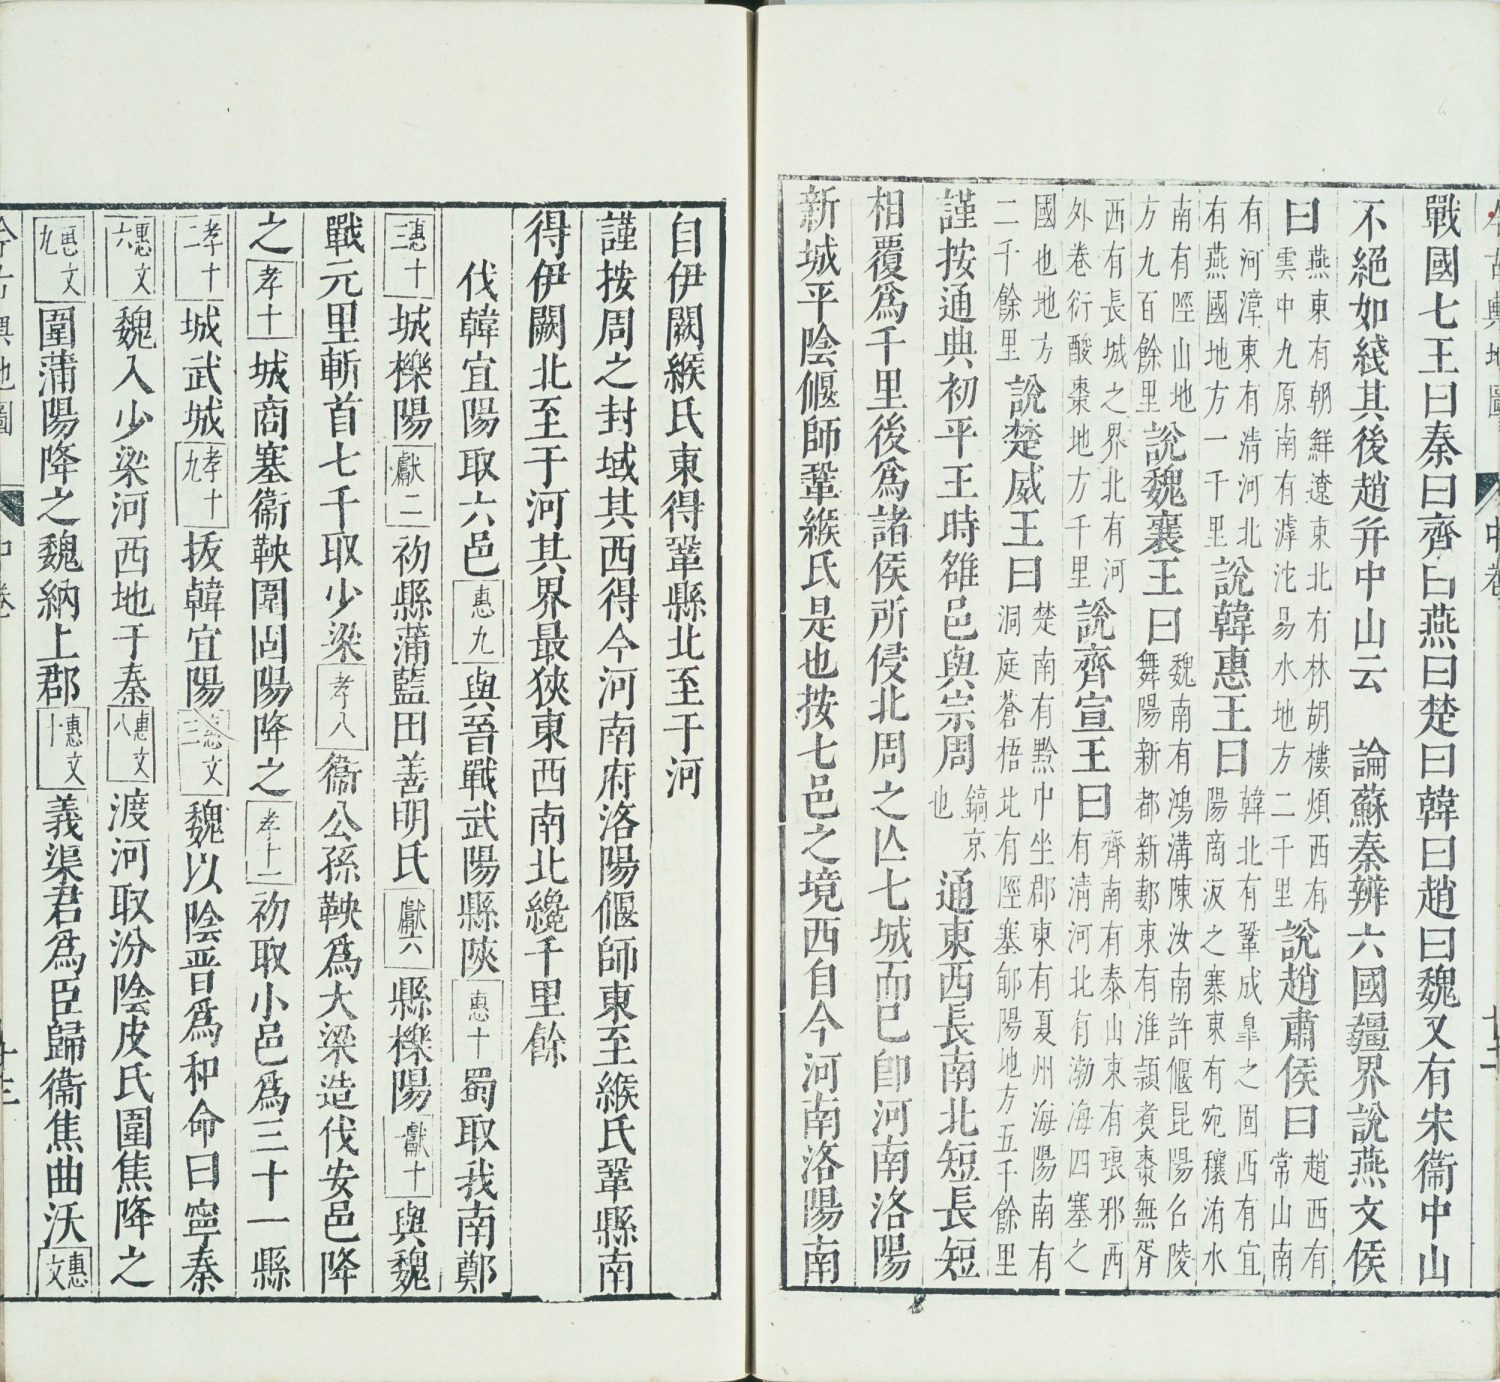 今古輿地圖 中卷
戰國七王曰秦曰齊曰燕曰楚曰韓曰趙曰魏又有宋衞中山
不絕如綫其後趙幷中山云　論蘇秦辨六國疆界說燕文侯
曰燕東有朝鮮遼東北有林胡樓煩西有雲中九原南有滹沱易水地方二千里說趙肅侯曰趙西有常山南
有河漳東有淸河北有燕國地方一千里說韓惠王曰韓北有鞏成皐之固西有宜陽商阪之塞東有宛穰洧水
南有陘山地方九百餘里說魏襄王曰魏南有鴻溝陳汝南許偃昆陽召陵舞陽新都新郪東有淮潁煑棗無胥
西有長城之界北有河外卷衍酸棗地方千里說齊宣王曰齊南有泰山東有琅邪西有淸河北有渤海四塞之
國也地方二千餘里說楚威王曰楚南有黔中坐郡東有夏州海陽南有洞庭蒼梧北有陘塞郇陽地方五千餘里
謹按通典初平王時雒邑與宗周鎬京也通東西長南北短長短
相覆爲千里後爲諸侯所侵北周之亾七城而已卽河南洛陽
新城平陰偃師鞏緱氏是也按七邑之境西自今河南洛陽南
自伊闕緱氏東得鞏縣北至于河
謹按周之封域其西得今河南府洛陽偃師東至緱氏鞏縣南
得伊闕北至于河其界最狹東西南北纔千里餘
伐韓宜陽取六邑惠九與晉戰武陽縣陝惠十蜀取我南鄭
惠十三城櫟陽獻二初縣蒲藍田善明氏獻六縣櫟陽獻十與魏
戰元里斬首七千取少梁孝八衞公孫鞅爲大梁造伐安邑降
之孝十城商塞衞鞅圍固陽降之孝十一初取小邑爲三十一縣
孝十二城武城孝十九拔韓宜陽惠文三魏以陰晉爲和命曰寧秦
惠文六魏入少梁河西地于秦惠文八渡河取汾陰皮氏圍焦降之
惠文九圍蒲陽降之魏納上郡惠文十義渠君爲臣歸衞焦曲沃惠文
今古輿地圖 中卷 十三